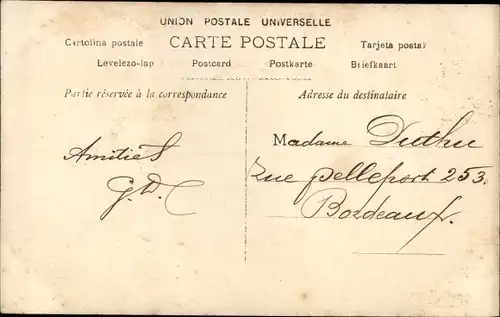 UNION POSTALE UNIVERSELLE
CARTE POSTALE
Cartolina postale
Tarjeta postal
Levelezo-lap
Postcard
Postkarte
Briefkaart
Partie réservée à la correspondance
Adresse du destinataire
Amitiés
G.D.C
Madame Duthu
rue pelleport 253.
Bordeaux.